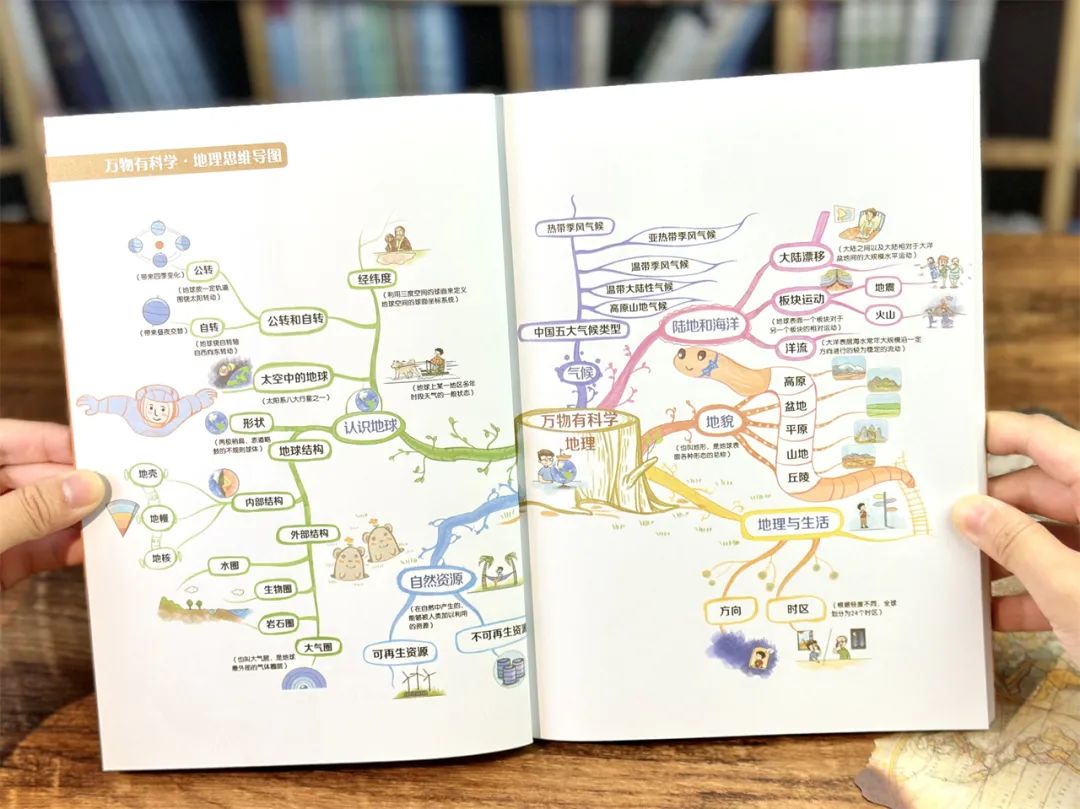 万物有科学·地理思维导图
公转
(带来四季变化)
(地球按一定轨道
围绕太阳转动)
自转
(带来昼夜交替)
(地球绕自转轴
自西向东转动)
公转和自转
经纬度
(利用三度空间的球面来定义
地球空间的球面坐标系统)
太空中的地球
(太阳系八大行星之一)
(地球上某一地区多年
时段天气的一般状态)
形状
(两极稍扁、赤道略
鼓的不规则球体)
认识地球
地球结构
地壳
地幔
地核
内部结构
外部结构
水圈
生物圈
岩石圈
大气圈
(也叫大气层,是地球
最外部的气体圈层)
自然资源
(在自然中产生的,
能够被人类加以利用
的资源)
可再生资源
不可再生资源
热带季风气候
亚热带季风气候
温带季风气候
温带大陆性气候
高原山地气候
中国五大气候类型
气候
万物有科学
地理
陆地和海洋
大陆漂移
(大陆之间以及大陆相对于大洋
盆地间的大规模水平运动)
板块运动
(地球表面一个板块对于
另一个板块的相对运动)
地震
火山
洋流
(大洋表层海水常年大规模沿一定
方向进行的较为稳定的流动)
地貌
(也叫地形,是地球表
面各种形态的总称)
高原
盆地
平原
山地
丘陵
地理与生活
方向
时区
(根据经度不同,全球
划分为24个时区)